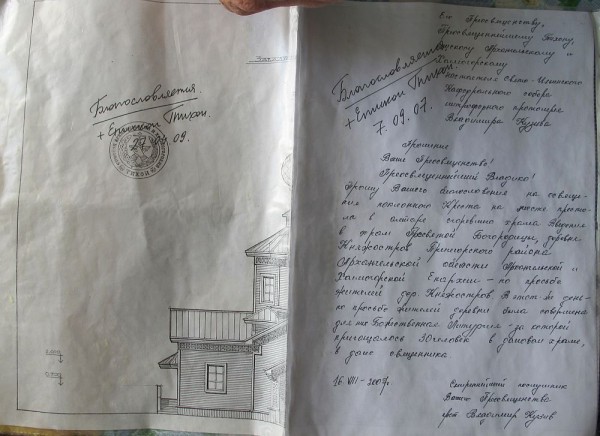 Благословляется.
+ Епископ Тихон.
27 09.
ТИХОН
Его Преосвященству,
Преосвященнейшему Тихону,
Архангельскому и
Холмогорскому
настоятеля Свято-Ильинского
Кафедрального собора
митрофорного протоиерея
Владимира Кузива
Благословляется
+ Епископ Тихон.
7. 09. 07.
Прошение
Ваше Преосвященство!
Преосвященнейший Владыко!
Прошу Вашего благословения на освяще-
ния поклонного Креста на месте престо-
ла в алтаре сгоревшего храма Введения
в храм Пресвятой Богородицы, деревни
Княжостров Приморского района
Архангельской области Архангельской и
Холмогорской Епархии - по просьбе
жителей дер. Княжостров. В этот-же день-
по просьбе жителей деревни была совершена
для них Божественная Литургия - за которой
причащалось 30 человек в домовом храме,
в доме священника
16. VIII - 2007г.
Смиреннейший послушник
Вашего Преосвященства
прот Владимир Кузив